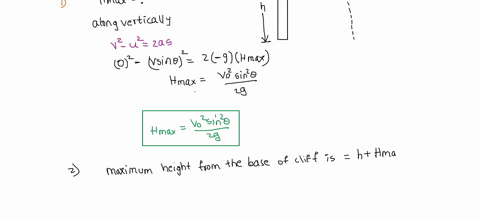 1) Hmax = ?
along vertically
h
v² - u² = 2as
(0)² - (vsinθ)² = 2(-g)(Hmax)
Hmax = V₀² sin²θ / 2g
Hmax = V₀² sin²θ / 2g
2) maximum height from the base of cliff is = h + Hma